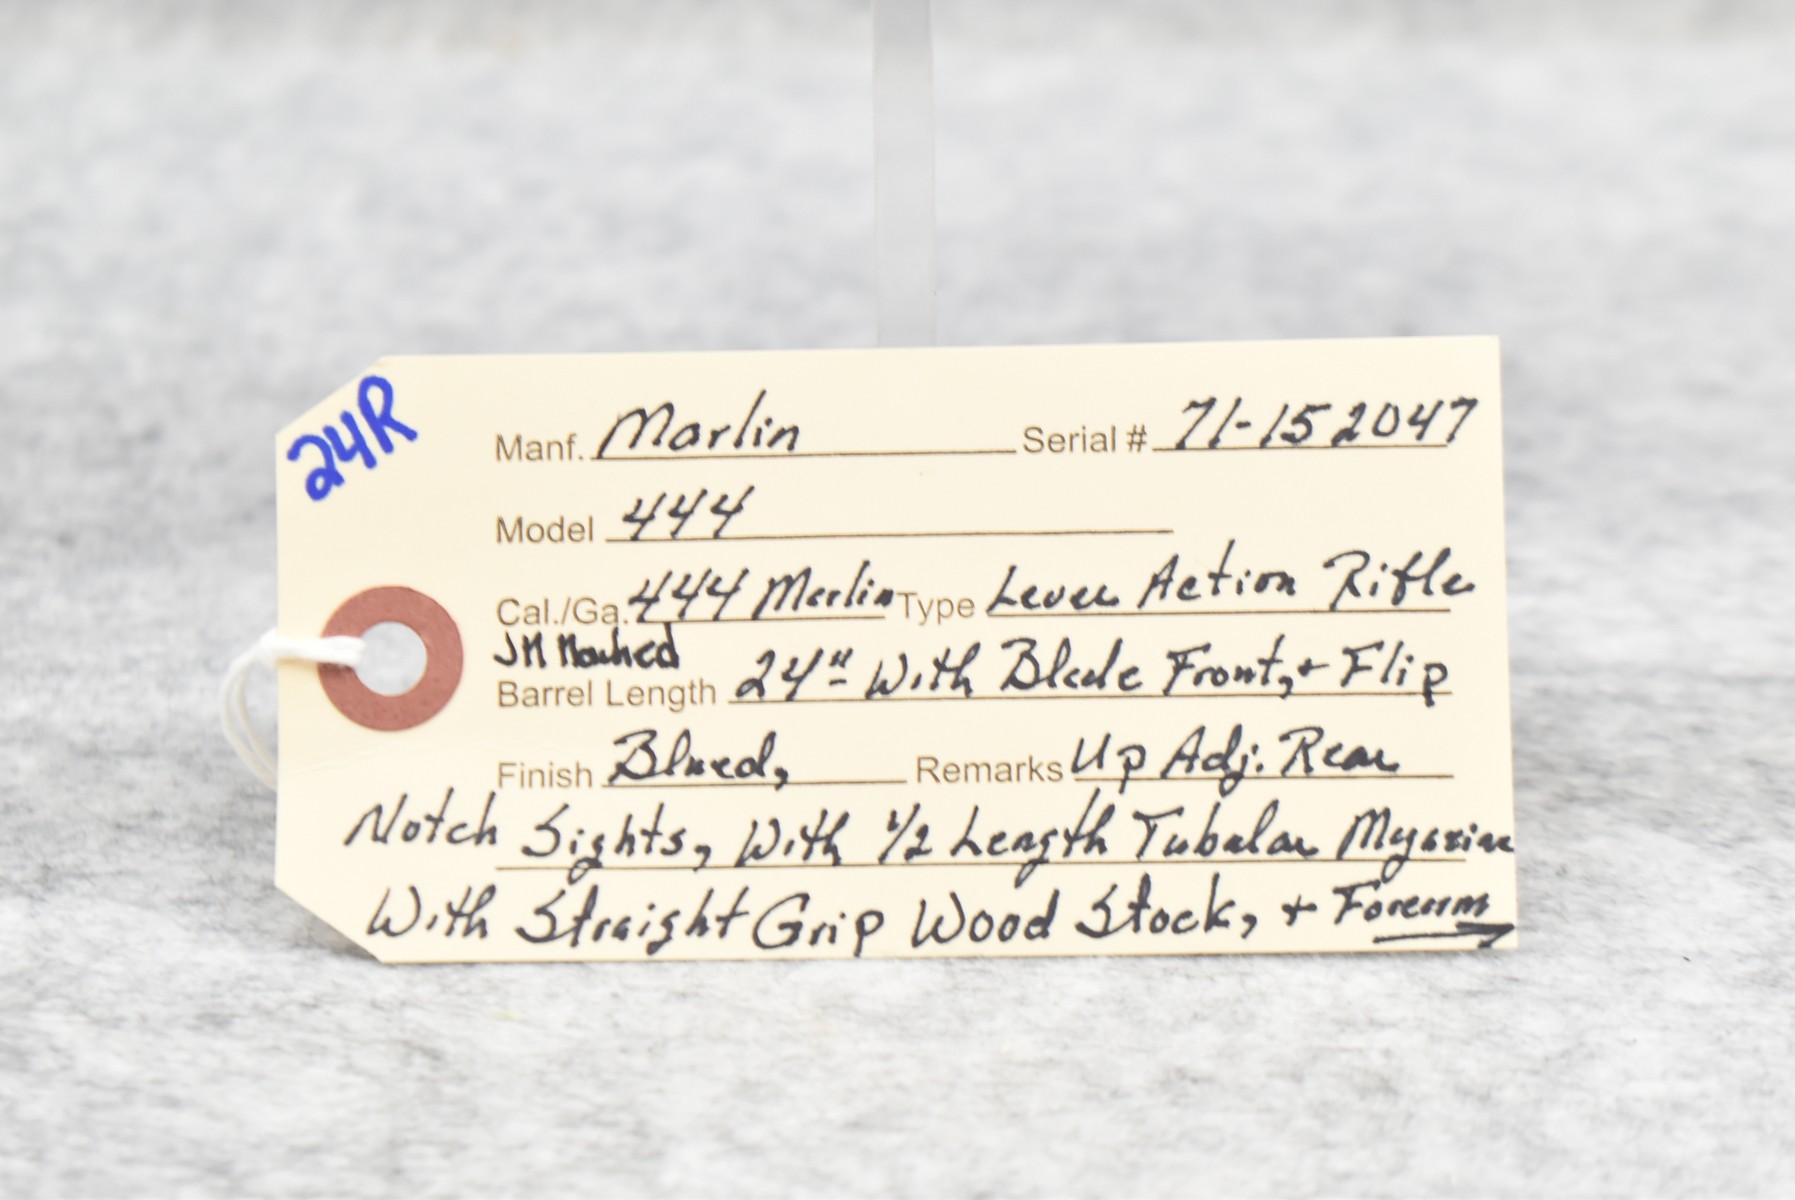 24R
Manf. Marlin Serial # 71-152047
Model 444
Cal./Ga. 444 Marlin Type Lever Action Rifle
JM Marked
Barrel Length 24" With Blade Front, + Flip
Finish Blued, Remarks Up Adj. Rear
Notch Sights, With 1/2 Length Tubular Magazine
With Straight Grip Wood Stock, + Forearm →